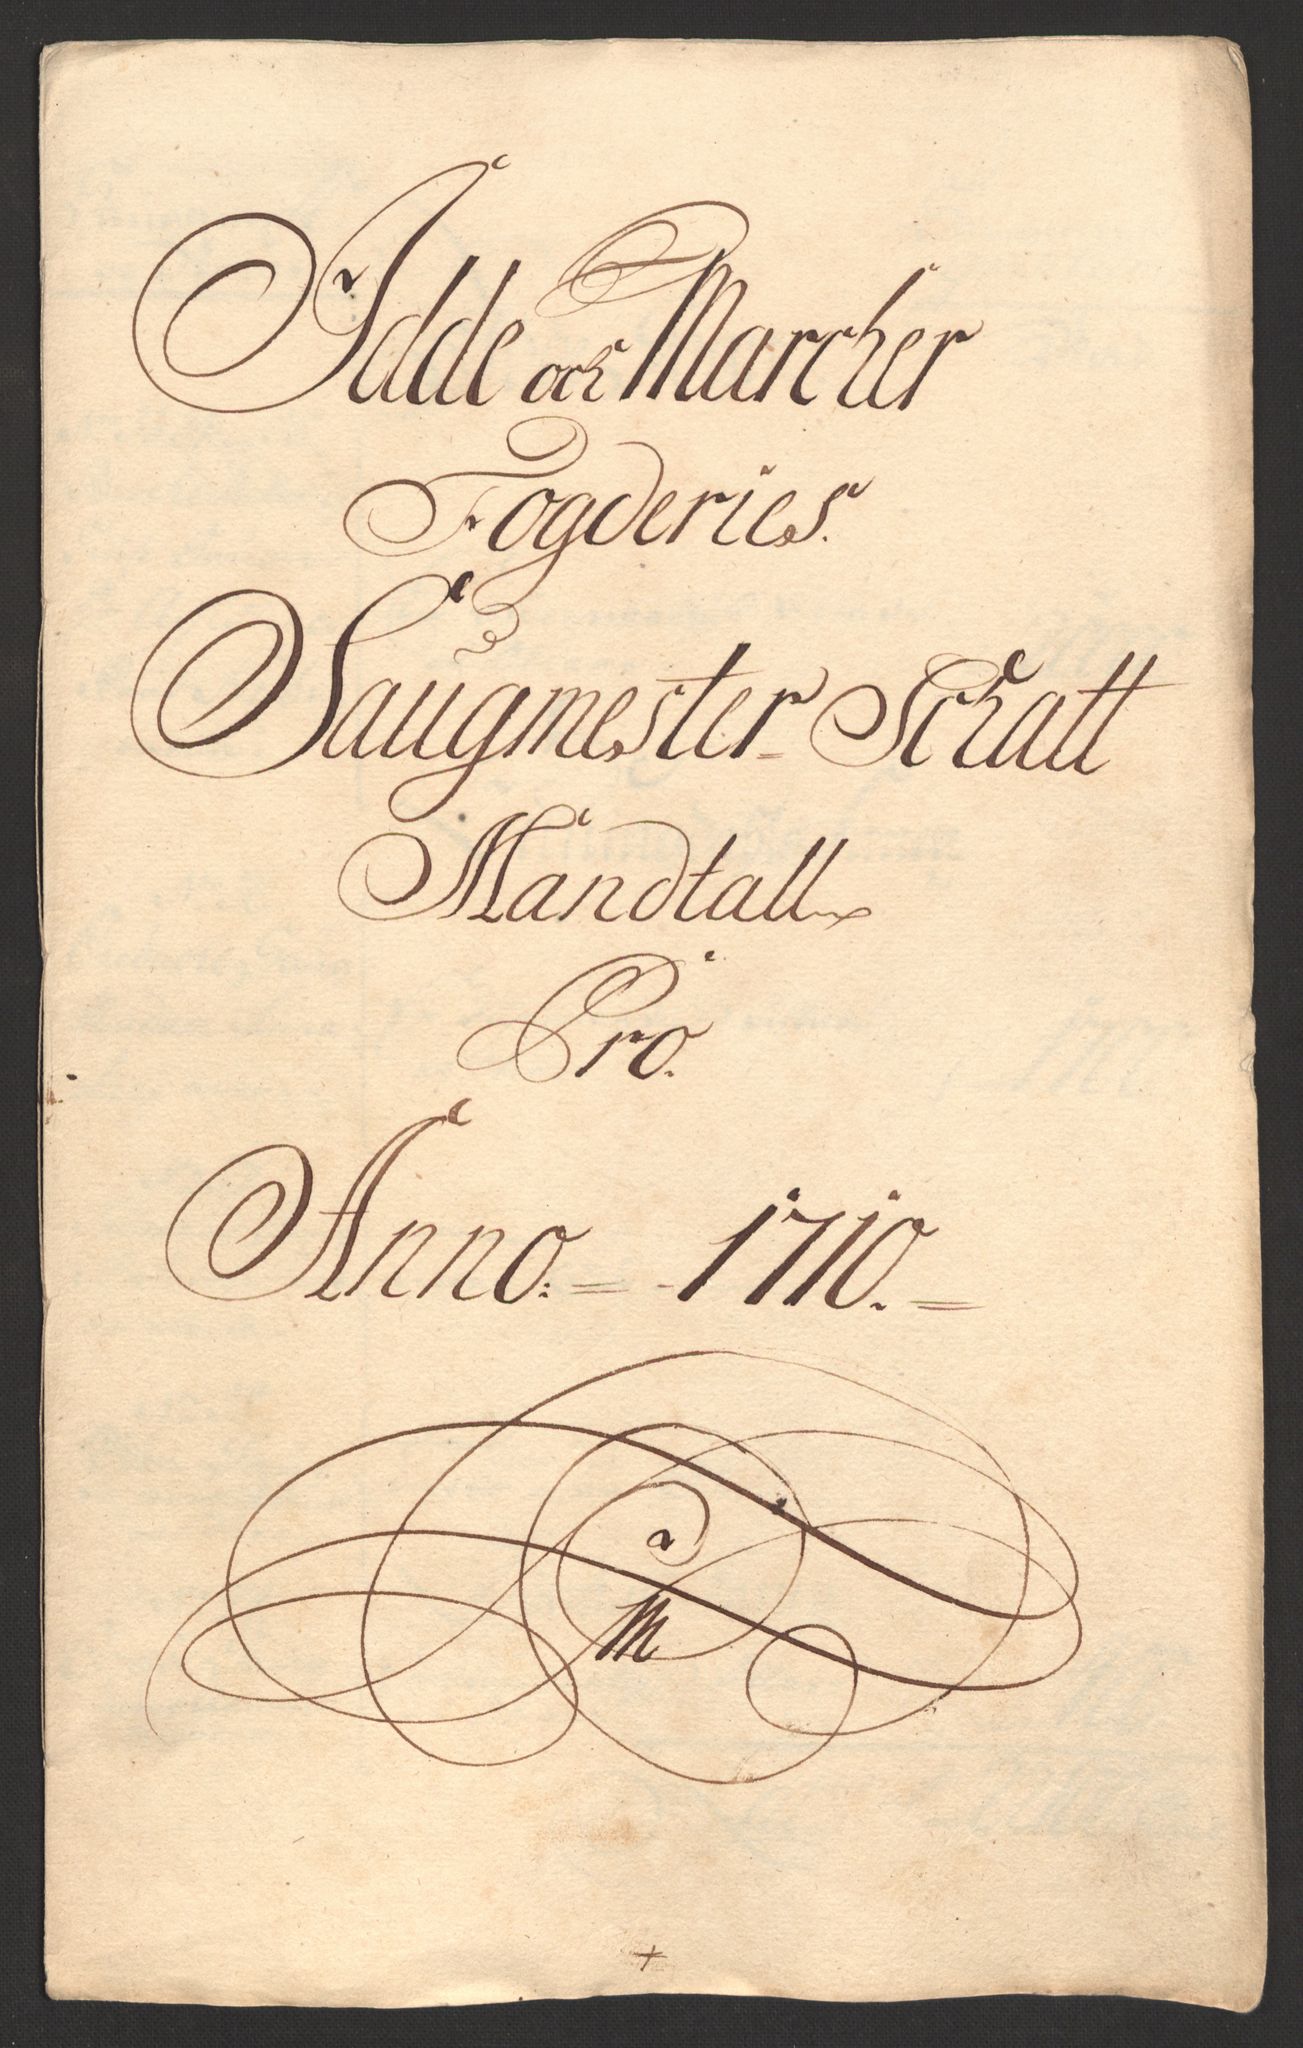 Idde och Marcher
Fogderies.
Saugmester Schatt
Mandtall
Pro.
Anno. = - 1710. =
M
+